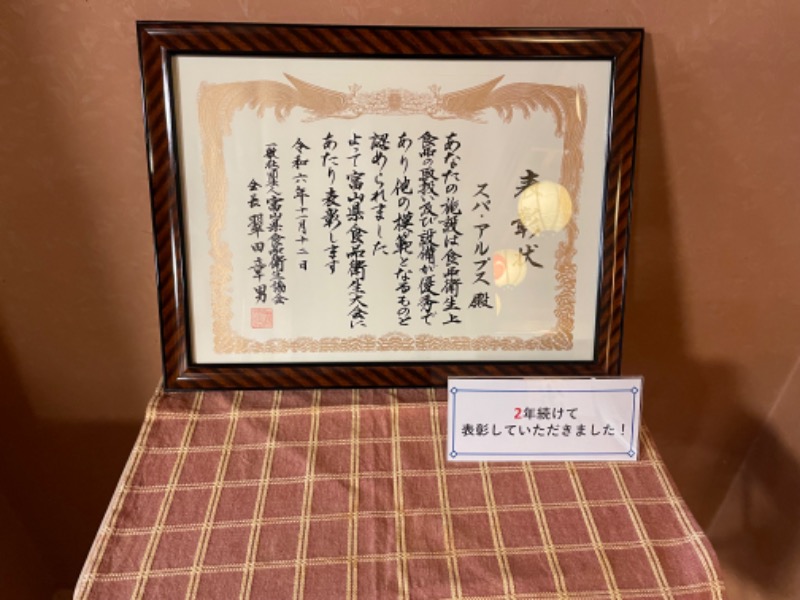 表彰状
スパ・アルプス 殿
あなたの施設は食品衛生上
食品の取扱い及び設備が優秀で
あり他の模範となるものと
認められました
よって富山県食品衛生大会に
あたり表彰します
令和六年十一月十二日
一般社団法人富山県食品衛生協会
会長 翠田章男
2年続けて
表彰していただきました！